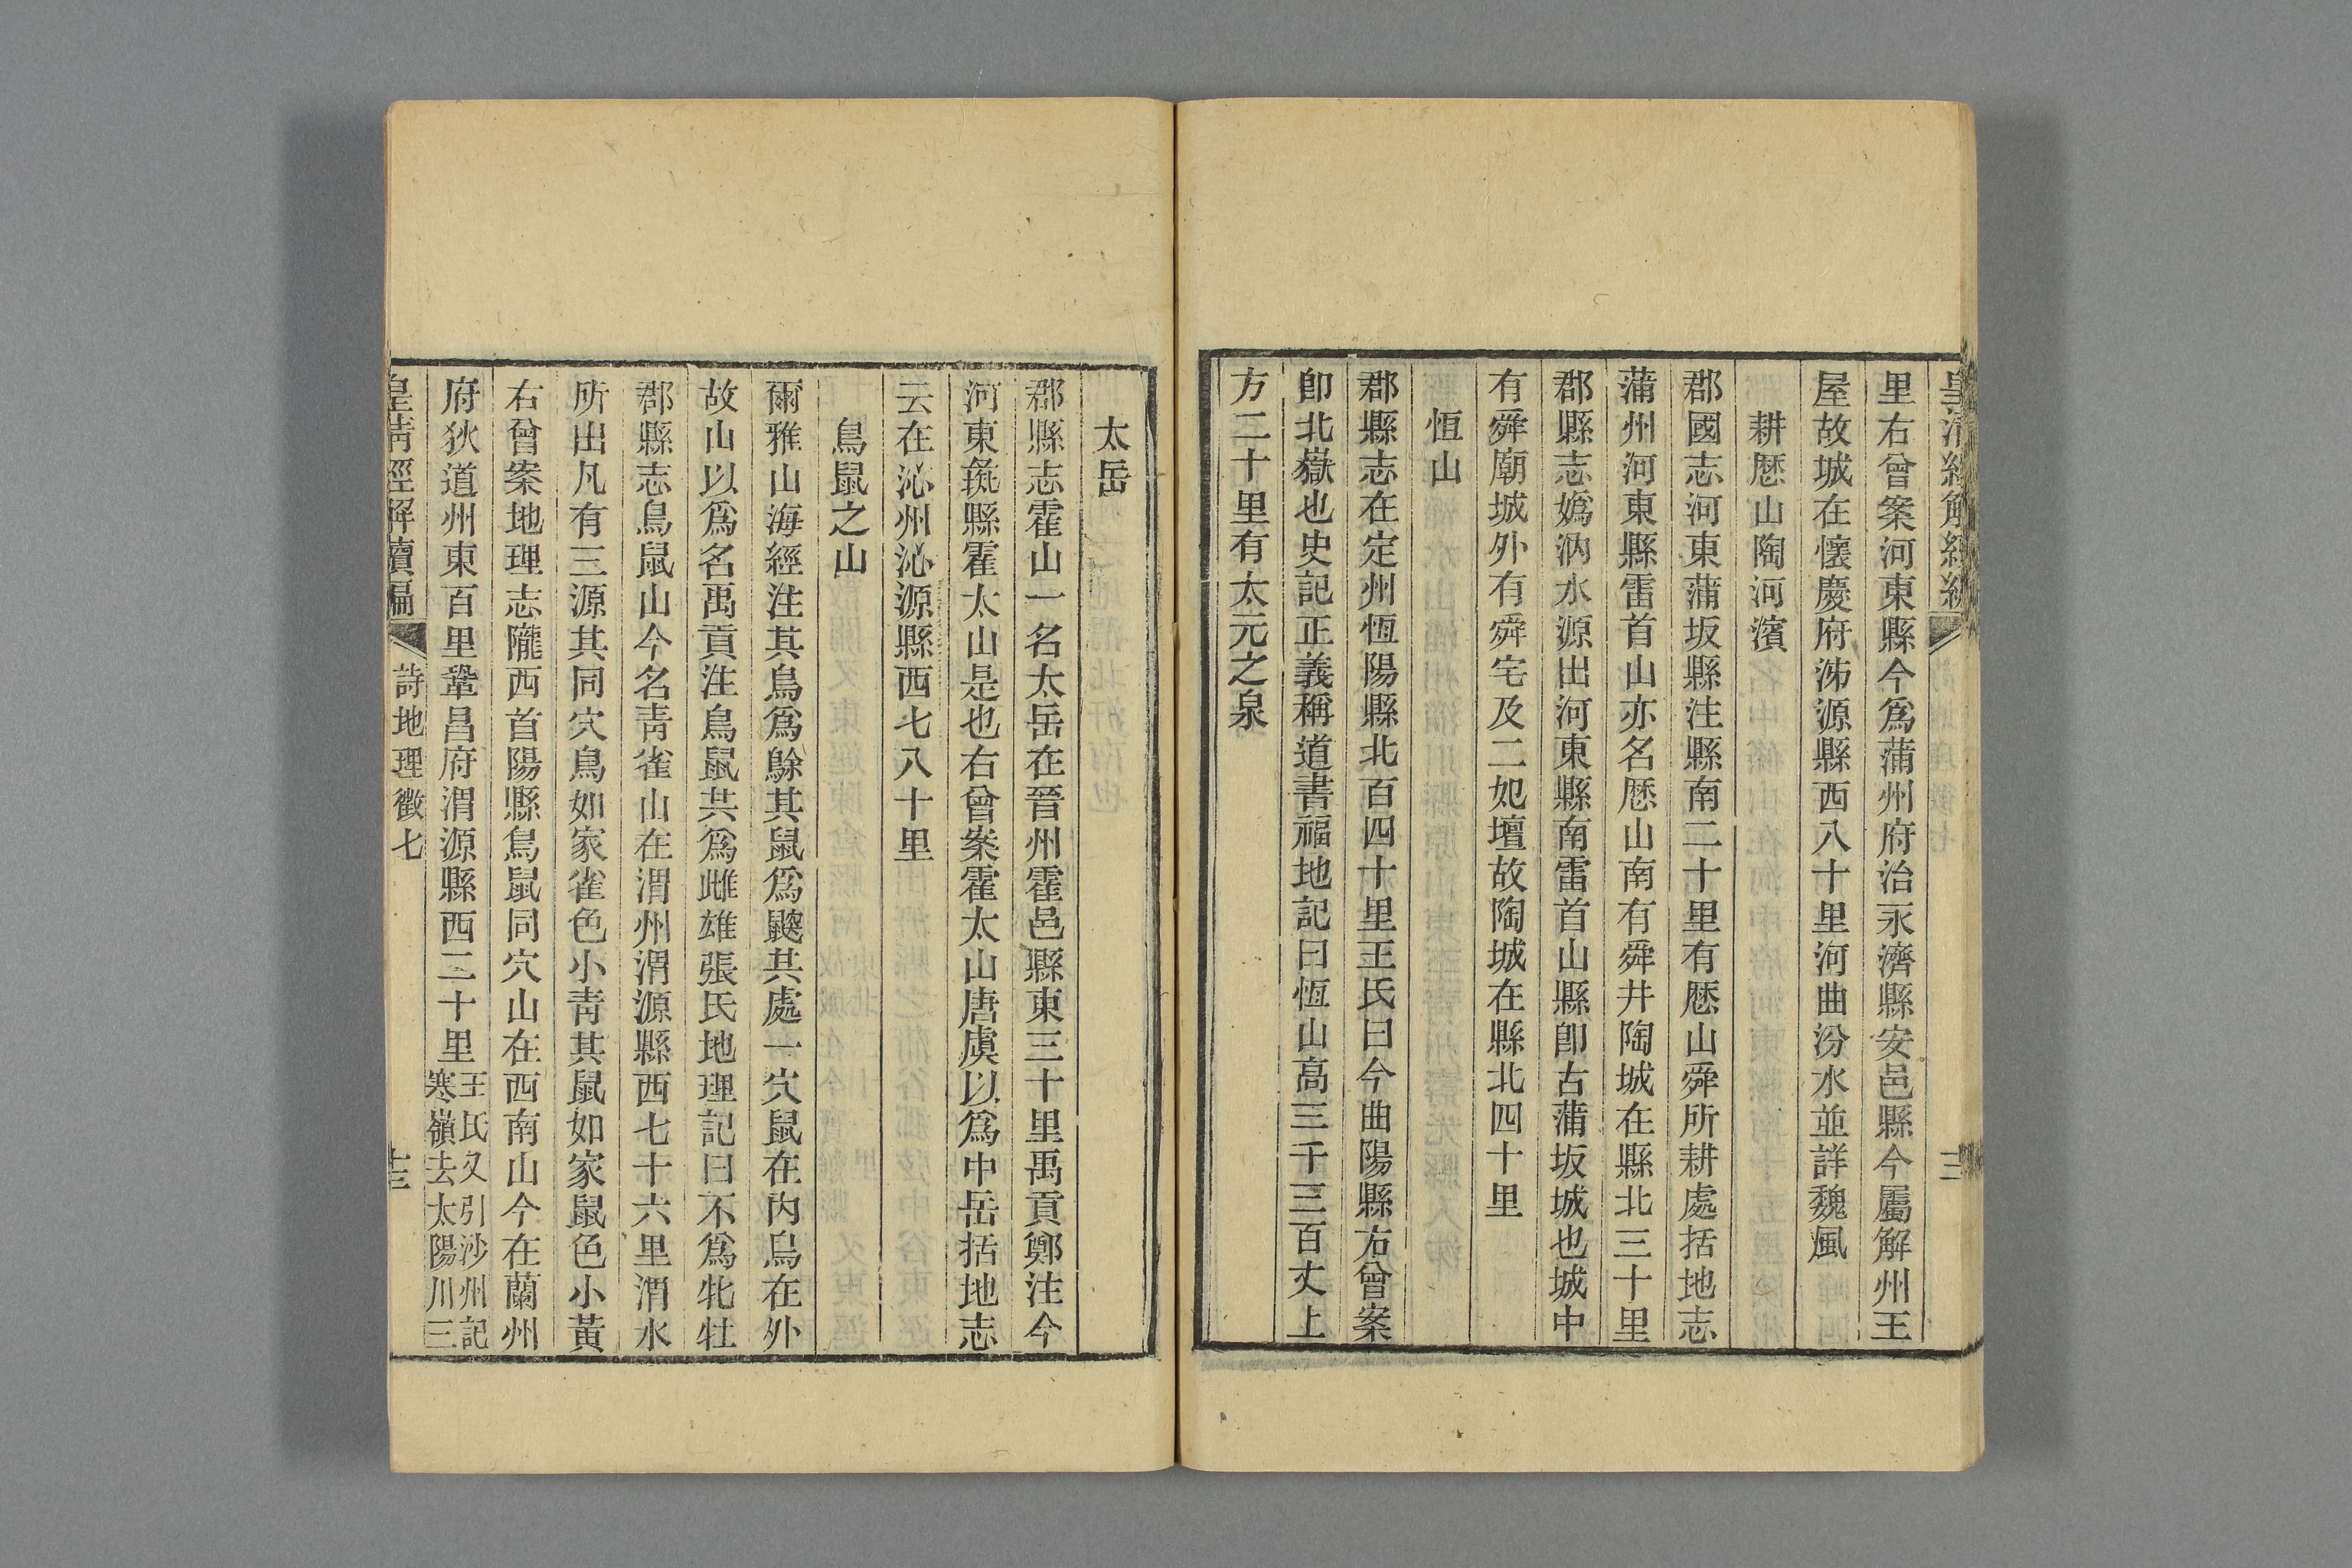 里右曾案河東縣今爲蒲州府治永濟縣安邑縣今屬解州王
屋故城在懷慶府㳍源縣西八十里河曲汾水並詳魏風
耕歷山陶河濱
郡國志河東蒲坂縣注縣南二十里有歷山舜所耕處括地志
蒲州河東縣雷首山亦名歷山南有舜井陶城在縣北三十里
郡縣志嬀汭水源出河東縣南雷首山縣卽古蒲坂城也城中
有舜廟城外有舜宅及二妃壇故陶城在縣北四十里
恆山
郡縣志在定州恆陽縣北百四十里王氏曰今曲陽縣右曾案
卽北嶽也史記正義稱道書福地記曰恆山高三千三百丈上
方二十里有太元之泉
太岳
郡縣志霍山一名太岳在晉州霍邑縣東三十里禹貢鄭注今
河東彘縣霍太山是也右曾案霍太山唐虞以爲中岳括地志
云在沁州沁源縣西七八十里
鳥鼠之山
爾雅山海經注其鳥爲鵌其鼠爲鼵共處一穴鼠在內鳥在外
故山以爲名禹貢注鳥鼠共爲雌雄張氏地理記曰不爲牝牡
郡縣志鳥鼠山今名靑雀山在渭州渭源縣西七十六里渭水
所出凡有三源其同穴鳥如家雀色小靑其鼠如家鼠色小黃
右曾案地理志隴西首陽縣鳥鼠同穴山在西南山今在蘭州
府狄道州東百里鞏昌府渭源縣西二十里王氏又引沙州記
寒嶺去太陽川三
皇淸經解續編
詩地理徵七
十三